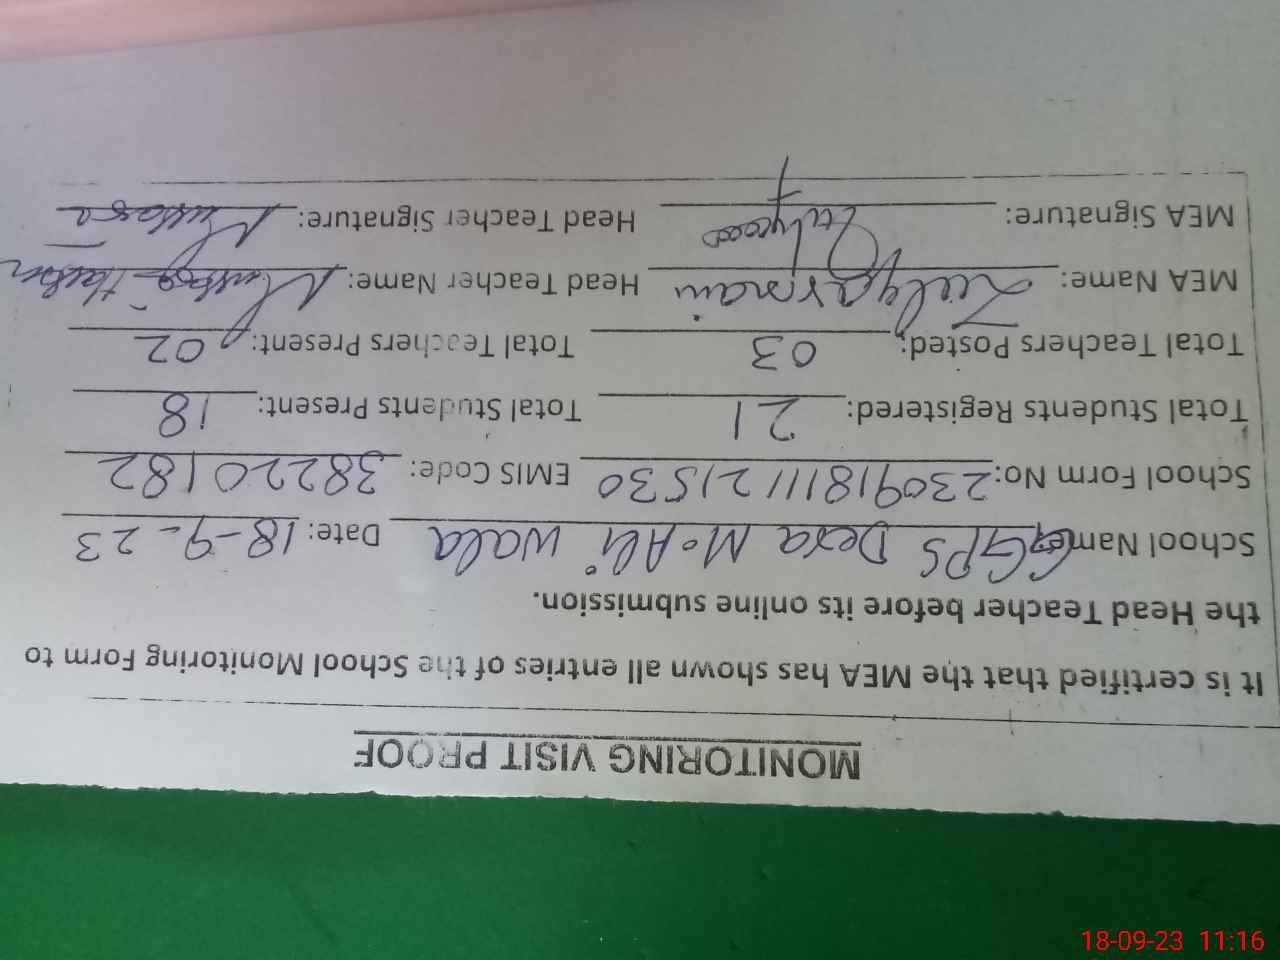 MONITORING VISIT PROOF
It is certified that the MEA has shown all entries of the School Monitoring Form to
the Head Teacher before its online submission.
School Name: GGPS Dera M. Ali Wala Date: 18-9-23
School Form No: 23091811121530 EMIS Code: 38220182
Total Students Registered: 21 Total Students Present: 18
Total Teachers Posted: 03 Total Teachers Present: 02
MEA Name: Head Teacher Name:
MEA Signature: Head Teacher Signature:
18-09-23 11:16